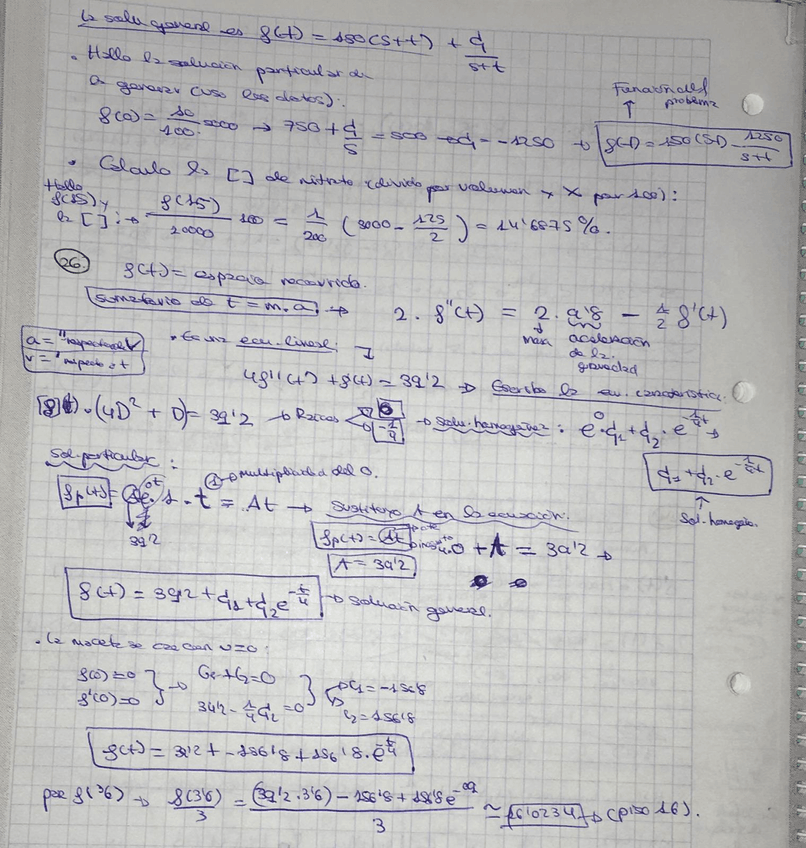 la solu general es g(t) = 150(5+t) + C1/(5+t)
• Hallo la solución particular de
la general (uso los datos):
g(0) = 10/100 · 5000 → 750 + C1/5 = 500 → C1 = -1250 → g(t) = 150(5+t) - 1250/(5+t)
Función del problema
• Calculo la [] de nitrato (divido por volumen y x por 100):
Hallo g(15) y la []: → g(15)/20000 · 100 = 1/200 (3000 - 125/2) = 14'6875%.
26. g(t) = espacio recorrido.
Sumatorio de t = m.a → 2. g''(t) = 2. 9'8 - 1/2 g'(t)
masa aceleración de la gravedad
a = '' respecto
v = ' respecto a t
• Es una ecu. lineal:
4g''(t) + g'(t) = 39'2 → Escribo la ecu. característica.
(4D² + D) = 39'2 → Raíces 0 -1/4 → solu. homogénea: e^0·C1 + C2·e^(-1/4 t) →
C1 + C2·e^(-1/4 t)
Sol. homogénea.
Sol. particular:
① → multiplicidad del 0.
gp(t) = Ae^(0t)·1·t = At → Sustituyo A en la ecuación.
39'2
gp(t) = At 4·0 + A = 39'2 →
A = 39'2
g(t) = 39'2 + C1 + C2e^(-t/4) → Solución general.
• La maceta se cae con v=0:
g(0) = 0
g'(0) = 0 } → C1 + C2 = 0
39'2 - 1/4 C2 = 0 } → C1 = -156'8
C2 = 156'8
g(t) = 39'2t - 156'8 + 156'8·e^(-t/4)
para g(3'6) → g(3'6)/3 = ((39'2·3'6) - 156'8 + 156'8e^(-0'9))/3 ≃ 16'0234 → (piso 16).